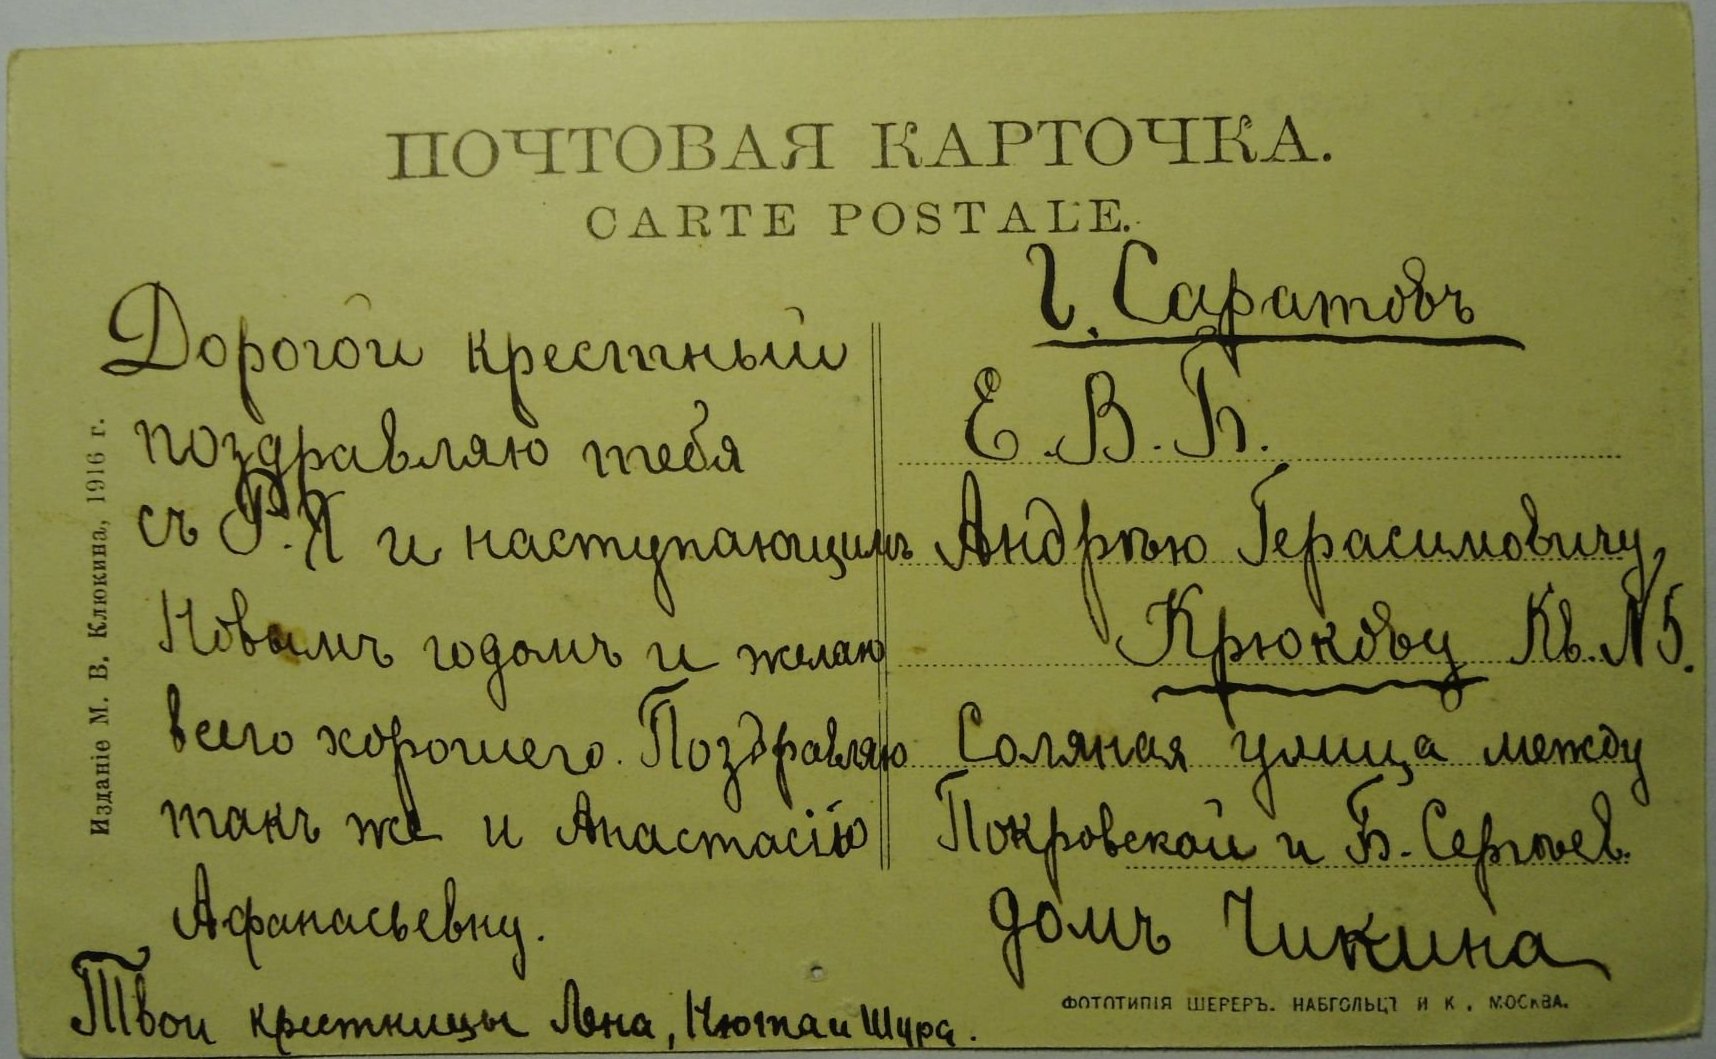 ПОЧТОВАЯ КАРТОЧКА.
CARTE POSTALE.
Дорогой крестный
поздравляю тебя
съ Р.Х и наступающимъ
Новымъ годомъ и желаю
всего хорошего. Поздравляю
такъ же и Анастасію
Афанасьевну.
Твои крестницы Лена, Нюта и Шура.
г. Саратовъ
Е. В. Б.
Андрѣю Герасимовичу
Крюкову Кв. N 5.
Соляная улица между
Покровской и Б. Сергѣев.
домъ Чикина
Изданіе М. В. Клюкина, 1916 г.
ФОТОТИПІЯ ШЕРЕРЪ. НАБГОЛЬЦЪ И К. МОСКВА.